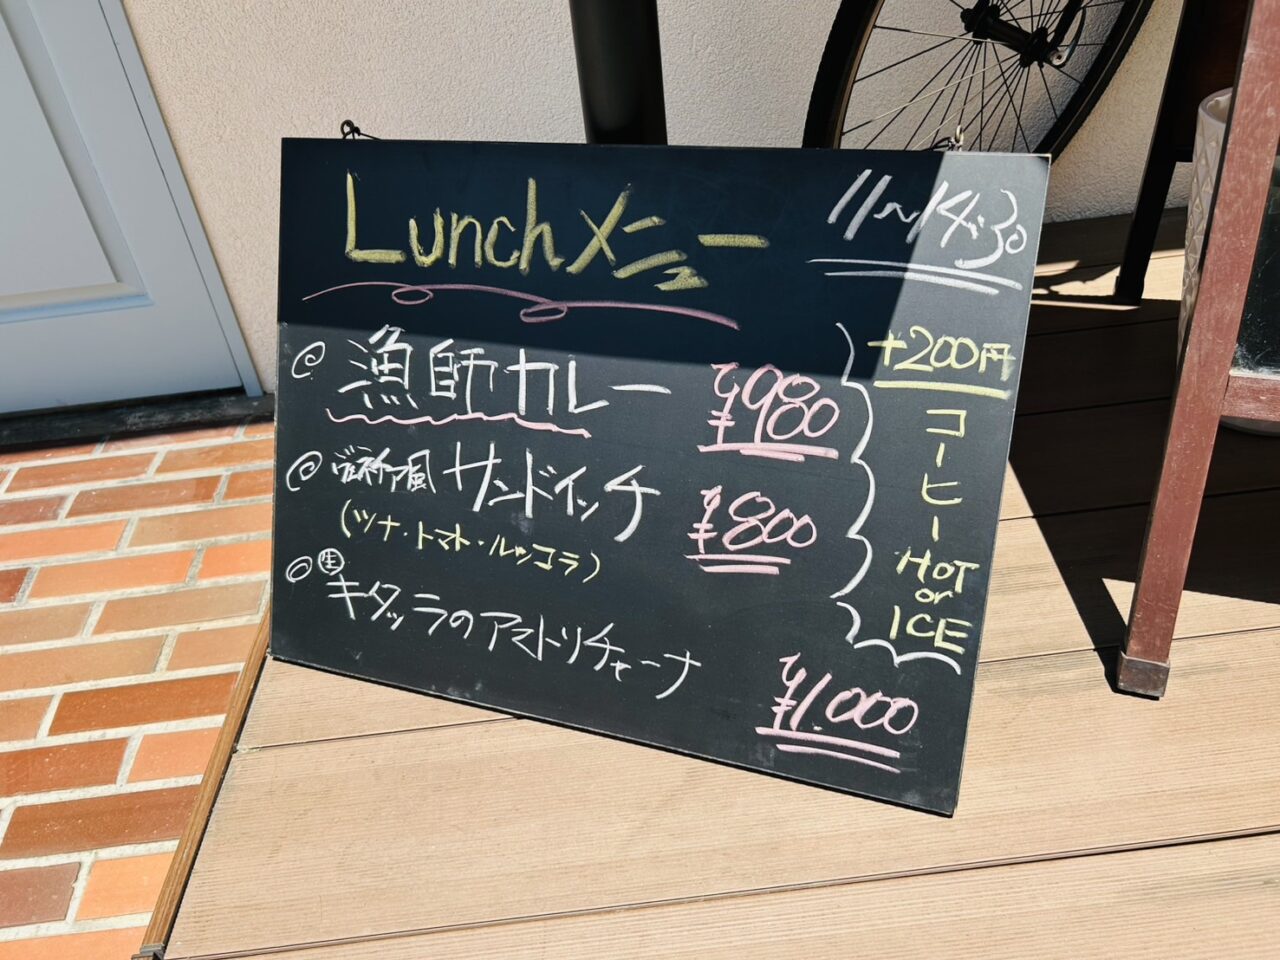 Lunchメニュー
11~14:30
◎ 漁師カレー ¥980
◎ ヴェネツィア風 サンドイッチ ¥800
(ツナ・トマト・ルッコラ)
◎ 生 キタッラのアマトリチャーナ
¥1.000
+200円
コーヒー
HOT
or
ICE